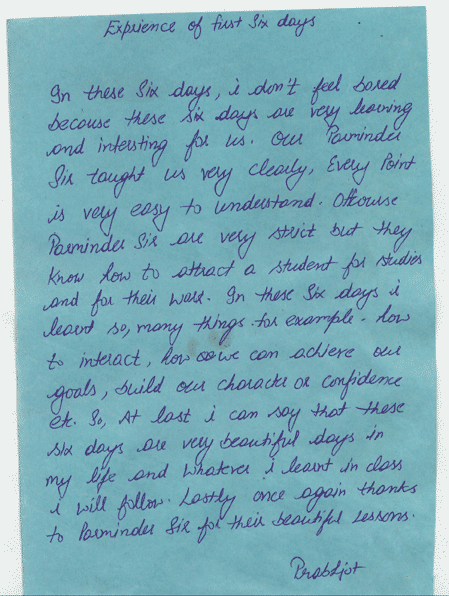 Exprience of first Six days
In these Six days, i don't feel bored
because these six days are very learning
and intersting for us. Our Parminder
Sir taught us very clearly, Every Point
is very easy to understand. Ofcourse
Parminder Sir are very strict but they
know how to attract a student for studies
and for their work. In these Six days i
learnt so, many things for example - how
to interact, how we can achieve our
goals, build our character or confidence
etc. So, At last i can say that these
six days are very beautiful days in
my life and whatever i learnt in class
i will follow. Lastly once again thanks
to Parminder Sir for their beautiful lessons.
Prabhjot